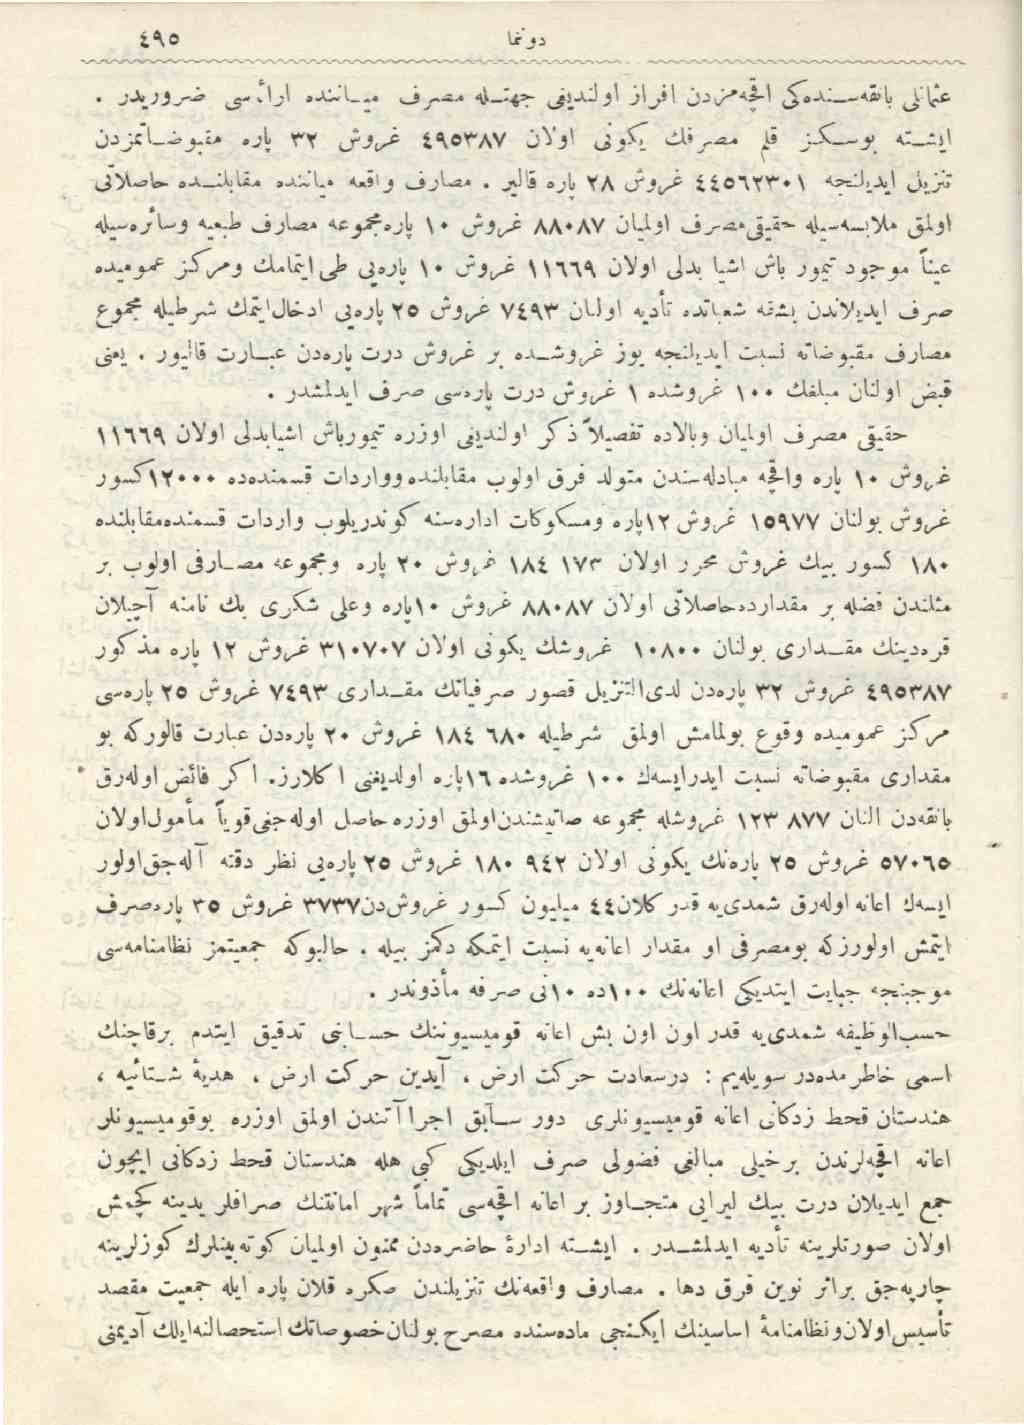 دوغا ٤٩٥
عثمانلی بانقه‌سنده‌كی اقچه‌مزدن افراز اولندیغی جهتله مصرف میاننده ارائه‌سی ضروریدر .
ایشته بوسكز قلم مصرفك یكونی اولان ٤٩٥٣٨٧ غروش ٣٢ پاره مقبوضاتمزدن
تنزیل ایدیلنجه ٤٤٥٦٢٣٠١ غروش ٢٨ پاره قالیر . مصارف واقعه میاننده مقابلنده حاصلاتی
اولمق ملابسه‌سیله حقیقی‌مصرف اولمیان ٨٨٠٨٧ غروش ١٠ پاره‌مجموعه مصارف طبعیه وسائره‌سیله
عیناً موجود تیمور باش اشیا بدلی اولان ١١٦٦٩ غروش ١٠ پاره‌یی طی ایتمامك ومركز عمومیده
صرف ایدیلاندن بشقه شعباتده تأدیه اولنان ٧٤٩٣ غروش ٢٥ پاره‌یی ادخال‌ایتمك شرطیله مجموع
مصارف مقبوضاته نسبت ایدیلنجه یوز غروشده بر غروش درت پاره‌دن عبارت قالیور . یعنی
قبض اولنان مبلغك ١٠٠ غروشده ١ غروش درت پاره‌سی صرف ایدلمشدر .
حقیقی مصرف اولمیان وبالاده تفصیلاً ذكر اولندیغی اوزره تیمورباش اشیابدلی اولان ١١٦٦٩
غروش ١٠ پاره واقچه مبادله‌سندن متولد فرق اولوب مقابلنده وواردات قسمنده‌ده ١٢٠٠٠كسور
غروش بولنان ١٥٩٧٧ غروش ١٢پاره ومسكوكات اداره‌سنه كوندریلوب واردات قسمنده‌مقابلنده
١٨٠ كسور بیك غروش محرر اولان ١٧٣ ١٨٤ غروش ٢٠ پاره ومجموعه مصارفی اولوب بر
مثلندن فضله بر مقدارده‌حاصلاتی اولان ٨٨٠٨٧ غروش ١٠پاره وعلی شكری بك نامنه آچیلان
قره‌دینك مقداری بولنان ١٠٨٠٠ غروشك یكونی اولان ٣١٠٧٠٧ غروش ١٢ پاره مذكور
٤٩٥٣٨٧ غروش ٣٢ پاره‌دن لدی‌التنزیل قصور صرفیاتك مقداری ٧٤٩٣ غروش ٢٥ پاره‌سی
مركز عمومیده وقوع بولمامش اولمق شرطیله ٦٨٠ ١٨٤ غروش ٢٠ پاره‌دن عبارت قالوركه بو
مقداری مقبوضاته نسبت ایدرایسه‌ك ١٠٠ غروشده ١٦پاره اولدیغنی اكلارز. اكر فائض اوله‌رق
بانقه‌دن النان ٨٧٧ ١٢٣ غروشله مجموعه صاتیشندن‌اولمق اوزره حاصل اوله‌جغی‌قویاً مأمول‌اولان
٥٧٠٦٥ غروش ٢٥ پاره‌نك یكونی اولان ٩٤٢ ١٨٠ غروش ٢٥ پاره‌یی نظر دقته آله‌جق‌اولور
ایسه‌ك اعانه اوله‌رق شمدی‌یه قدر كلان٤٤ میلیون كسور غروش‌دن٣٧٣٧ غروش ٣٥ پاره‌صرف
ایتمش اولورزكه بومصرفی او مقدار اعانه‌یه نسبت ایتمكه دكمز بیله . حالبوكه جمعیتمز نظامنامه‌سی
موجبنجه جبایت ایتدیكی اعانه‌نك ١٠٠ده ١٠نی صرفه مأذوندر .
حسب‌الوظیفه شمدی‌یه قدر اون اون بش اعانه قومیسیوننك حسابنی تدقیق ایتدم برقاچنك
اسمی خاطرمده‌در سویله‌یم : درسعادت حركت ارض ، آیدین حركت ارض ، هدیهٔ شتائیه ،
هندستان قحط زدكانی اعانه قومیسیونلری دور سابق اجراآتندن اولمق اوزره بوقومیسیونلر
اعانه اقچه‌لرندن برخیلی مبالغی فضولی صرف ایلدیكی كبی هله هندستان قحط زدكانی ایچون
جمع ایدیلان درت بیك لیرایی متجاوز بر اعانه اقچه‌سی تماماً شهر امانتنك صرافلر یدینه كچمش
اولان صورتلرینه تأدیه ایدلمشدر . ایشته ادارهٔ حاضره‌دن ممنون اولمیان كوته‌بینلرك كوزلرینه
چارپه‌جق براثر نوین فرق دها . مصارف واقعه‌نك تنزیلندن صكره قلان پاره ایله جمعیت مقصد
تأسیس‌اولان‌ونظامنامهٔ اساسینك ایكنجی ماده‌سنده مصرح بولنان‌خصوصاتك استحصالنه‌ایلك آدیمنی